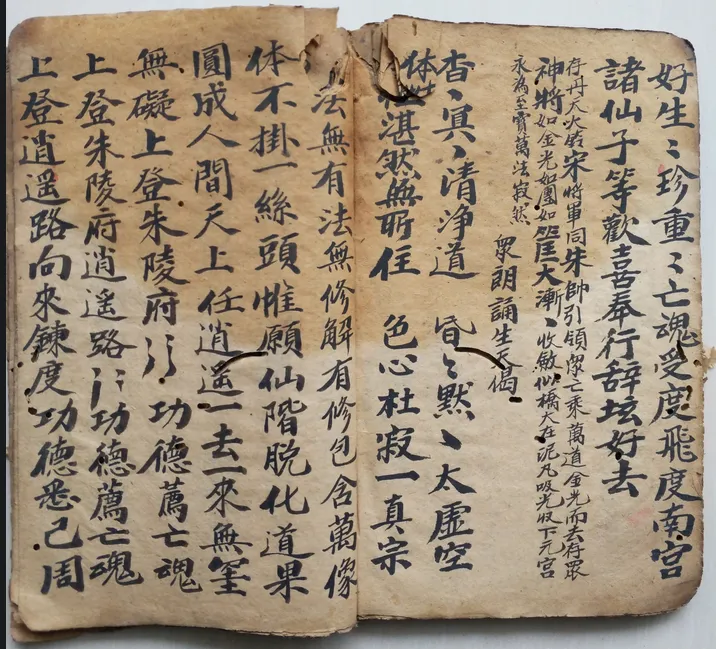 好生〻珍重〻亡魂受度飛度南宫
諸仙子等歡喜奉行辞坛好去
存丹天火鈴宋將軍同朱帥引領眾亡乘萬道金光而去存眾
神將如金光如圓如筐大漸〻收斂似橘大在泥丸吸光収下元宮
永為至寶萬法寂然
眾朗誦生天偈
杳〻冥〻清净道 昏〻默〻太虛空
体性湛然無所住 色心杜寂一真宗
法無有法無修解有修包含萬像
体不掛一絲頭惟願仙階脫化道果
圓成人間天上任逍遥一去一來無罣
無礙上登朱陵府〻〻功德薦亡魂
上登朱陵府逍遥路〻〻功德薦亡魂
上登逍遥路向來鍊度功德悉已周